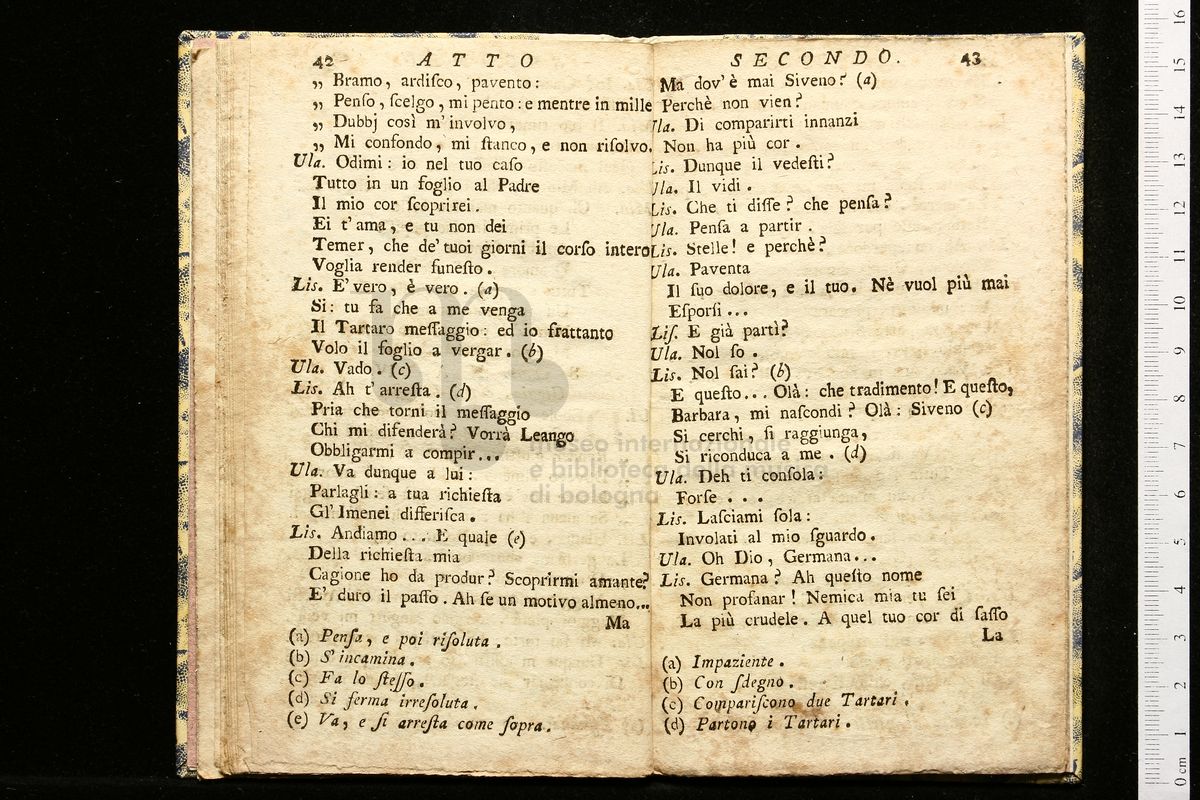 42 ATTO
„ Bramo, ardiſco, pavento:
„ Penſo, ſcelgo, mi pento: e mentre in mille
„ Dubbj così m' involvo,
„ Mi confondo, mi ſtanco, e non riſolvo.
Ula. Odimi: io nel tuo caſo
Tutto in un foglio al Padre
Il mio cor ſcoprirei.
Ei t' ama, e tu non dei
Temer, che de' tuoi giorni il corſo intero
Voglia render funeſto.
Lis. E' vero, è vero. (a)
Si: tu fa che a me venga
Il Tartaro meſſaggio: ed io frattanto
Volo il foglio a vergar. (b)
Ula. Vado. (c)
Lis. Ah t' arreſta. (d)
Pria che torni il meſſaggio
Chi mi difenderà? Vorrà Leango
Obbligarmi a compir...
Ula. Va dunque a lui:
Parlagli: a tua richieſta
Gl' Imenei differiſca.
Lis. Andiamo... E quale (e)
Della richieſta mia
Cagione ho da produr? Scoprirmi amante?
E' duro il paſſo. Ah ſe un motivo almeno...
Ma
(a) Penſa, e poi riſoluta.
(b) S' incamina.
(c) Fa lo ſteſſo.
(d) Si ferma irreſoluta.
(e) Va, e ſi arreſta come ſopra.
SECONDO. 43
Ma dov' è mai Siveno? (a)
Perchè non vien?
Ula. Di comparirti innanzi
Non ha più cor.
Lis. Dunque il vedeſti?
Ula. Il vidi.
Lis. Che ti diſſe? che penſa?
Ula. Penſa a partir.
Lis. Stelle! e perchè?
Ula. Paventa
Il ſuo dolore, e il tuo. Nè vuol più mai
Eſporſi...
Liſ. E già partì?
Ula. Nol ſo.
Lis. Nol ſai? (b)
E queſto... Olà: che tradimento! E queſto,
Barbara, mi naſcondi? Olà: Siveno (c)
Si cerchi, ſi raggiunga,
Si riconduca a me. (d)
Ula. Deh ti conſola:
Forſe...
Lis. Laſciami ſola:
Involati al mio ſguardo.
Ula. Oh Dio, Germana...
Lis. Germana? Ah queſto nome
Non profanar! Nemica mia tu ſei
La più crudele. A quel tuo cor di ſaſſo
La
(a) Impaziente.
(b) Con ſdegno.
(c) Compariſcono due Tartari.
(d) Partono i Tartari.
museo internazionale
e biblioteca della musica
di bologna
0 cm 1 2 3 4 5 6 7 8 9 10 11 12 13 14 15 16